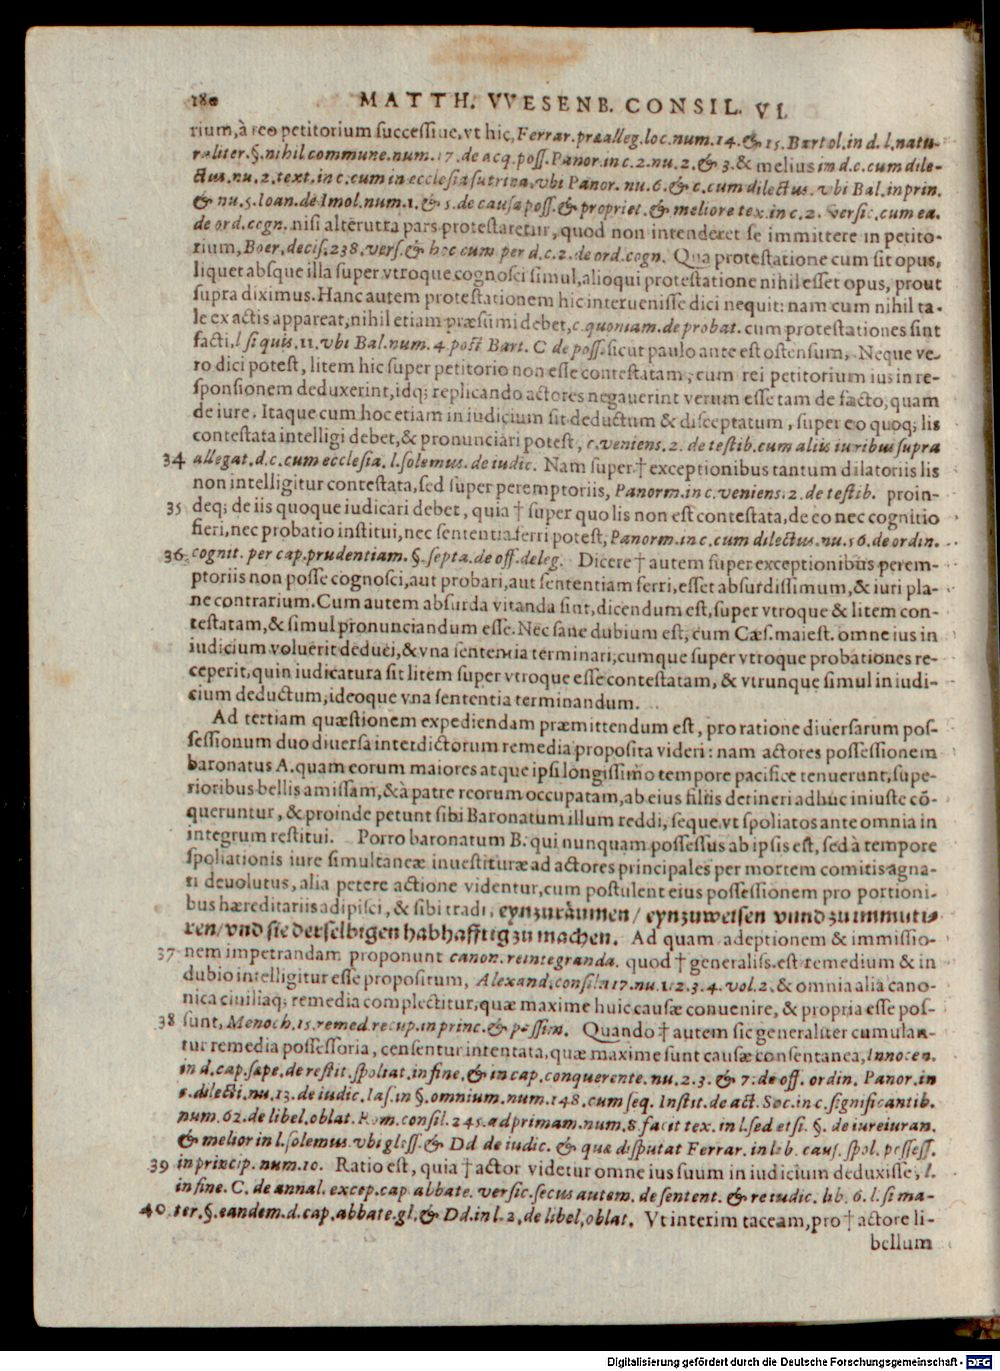 180 MATTH. VVESENB. CONSIL. VI.
rium, à reo petitorium successiue, vt hic, Ferrar. præalleg. loc. num. 14. & 15. Bartol. in d. l. natu-
raliter. §. nihil commune. num. 17. de acq. poss. Panor. in c. 2. nu. 2. & 3. & melius in d. c. cum dile-
ctus. nu. 2. text. in c. cum in ecclesia sutrina, vbi Panor. nu. 6. & c. cum dilectus. vbi Bal. in prin.
& nu. 5. Ioan. de Imol. num. 1. & 5. de causa poss. & propriet. & meliore tex. in c. 2. versic. cum ea.
de ord. cogn. nisi alterutra pars protestaretur, quod non intenderet se immittere in petito-
rium, Boer. decis. 238. vers. & hoc cum per d. c. 2. de ord. cogn. Qua protestatione cum sit opus,
liquet absque illa super vtroque cognosci simul, alioqui protestatione nihil esset opus, prout
supra diximus. Hanc autem protestationem hic interuenisse dici nequit: nam cum nihil ta-
le ex actis appareat, nihil etiam præsumi debet, c. quoniam. de probat. cum protestationes sint
facti, l. si quis. 11. vbi Bal. num. 4. post Bart. C de poss. sicut paulo ante est ostensum, Neque ve-
ro dici potest, litem hic super petitorio non esse contestatam, cum rei petitorium ius in re-
sponsionem deduxerint, idq; replicando actores negauerint verum esse tam de facto, quam
de iure. Itaque cum hoc etiam in iudicium sit deductum & disceptatum, super eo quoq; lis
contestata intelligi debet, & pronunciari potest, c. veniens. 2. de testib. cum aliis iuribus supra
34 allegat. d. c. cum ecclesia. l. solemus. de iudic. Nam super † exceptionibus tantum dilatoriis lis
non intelligitur contestata, sed super peremptoriis, Panorm. in c. veniens. 2. de testib. proin-
35 deq; de iis quoque iudicari debet, quia † super quo lis non est contestata, de eo nec cognitio
fieri, nec probatio institui, nec sententia ferri potest, Panorm. in c. cum dilectus. nu. 16. de ordin.
36 cognit. per cap. prudentiam. §. septa. de off. deleg. Dicere † autem super exceptionibus perem-
ptoriis non posse cognosci, aut probari, aut sententiam ferri, esset absurdissimum, & iuri pla-
ne contrarium. Cum autem absurda vitanda sint, dicendum est, super vtroque & litem con-
testatam, & simul pronunciandum esse. Nec sane dubium est, cum Cæs. maiest. omne ius in
iudicium voluerit deduci, & vna sententia terminari, cumque super vtroque probationes re-
ceperit, quin iudicatura sit litem super vtroque esse contestatam, & vtrunque simul in iudi-
cium deductum, ideoque vna sententia terminandum.
Ad tertiam quæstionem expediendam præmittendum est, pro ratione diuersarum pos-
sessionum duo diuersa interdictorum remedia proposita videri: nam actores possessionem
baronatus A. quam eorum maiores atque ipsi longissimo tempore pacifice tenuerunt, supe-
rioribus bellis amissam, & à patre reorum occupatam, ab eius filiis detineri adhuc iniuste cō-
queruntur, & proinde petunt sibi Baronatum illum reddi, seque vt spoliatos ante omnia in
integrum restitui. Porro baronatum B. qui nunquam possessus ab ipsis est, sed à tempore
spoliationis iure simultaneæ inuestituræ ad actores principales per mortem comitis agna-
ti deuolutus, alia petere actione videntur, cum postulent eius possessionem pro portioni-
bus hæreditariis adipisci, & sibi tradi, eynzuräumen / eynzuweisen vnnd zu immitti-
ren / vnd sie derselbigen habhafftig zu machen. Ad quam adeptionem & immissio-
37 nem impetrandam proponunt canon. reintegranda. quod † generaliss. est remedium & in
dubio intelligitur esse propositum, Alexand. consil. 117. nu. 1. 2. 3. 4. vol. 2. & omnia alia cano-
nica ciuiliaq; remedia complectitur, quæ maxime huic causæ conuenire, & propria esse pos-
38 sunt, Menoch. 15. remed. recup. in princ. & passim. Quando † autem sic generaliter cumulan-
tur remedia possessoria, censentur intentata, quæ maxime sunt causæ consentanea, Innocen.
in d. cap. sæpe. de restit. spoliat. in fine. & in cap. conquerente. nu. 2. 3. & 7. de off. ordin. Panor. in
c. dilecti. nu. 13. de iudic. Ias. in §. omnium. num. 148. cum seq. Instit. de act. Soc. in c. significantib.
num. 62. de libel. oblat. Rom. consil. 245. ad primam. num. 8. facit tex. in l. sed etsi. §. de iureiuran.
& melior in l. solemus. vbi gloss. & Dd de iudic. & quæ disputat Ferrar. in lib. caus. spol. possess.
39 in princip. num. 10. Ratio est, quia † actor videtur omne ius suum in iudicium deduxisse, l.
in fine. C. de annal. excep. cap. abbate. versic. secus autem. de sentent. & re iudic. lib. 6. l. si ma-
40 ter. §. eandem. d. cap. abbate. gl. & Dd. in l. 2. de libel. oblat. Vt interim taceam, pro † actore li-
bellum
Digitalisierung gefördert durch die Deutsche Forschungsgemeinschaft - DFG